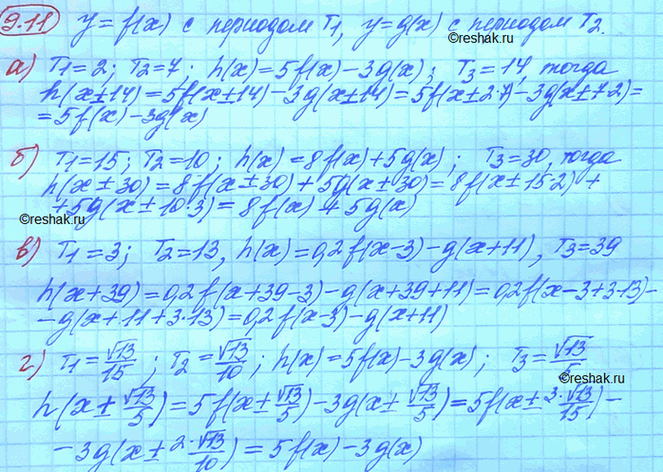 9.11 y = f(x) с периодом T₁, y = g(x) с периодом T₂.
©reshak.ru
а) T₁ = 2; T₂ = 7; h(x) = 5f(x) − 3g(x); T₃ = 14, тогда
h(x±14) = 5f(x±14) − 3g(x±14) = 5f(x±2·7) − 3g(x±7·2) =
= 5f(x) − 3g(x)
б) T₁ = 15; T₂ = 10; h(x) = 8f(x) + 5g(x); T₃ = 30, тогда
h(x±30) = 8f(x±30) + 5g(x±30) = 8f(x±15·2) +
+ 5g(x±10·3) = 8f(x) + 5g(x)
©reshak.ru
в) T₁ = 3; T₂ = 13, h(x) = 0,2f(x−3) − g(x+11), T₃ = 39
h(x+39) = 0,2f(x+39−3) − g(x+39+11) = 0,2f(x−3+3·13) −
− g(x+11+3·13) = 0,2f(x−3) − g(x+11)
г) T₁ = √13/15; T₂ = √13/10; h(x) = 5f(x) − 3g(x); T₃ = √13/5
©reshak.ru
h(x ± √13/5) = 5f(x ± √13/5) − 3g(x ± √13/5) = 5f(x ± 3·√13/15) −
− 3g(x ± 2·√13/10) = 5f(x) − 3g(x)